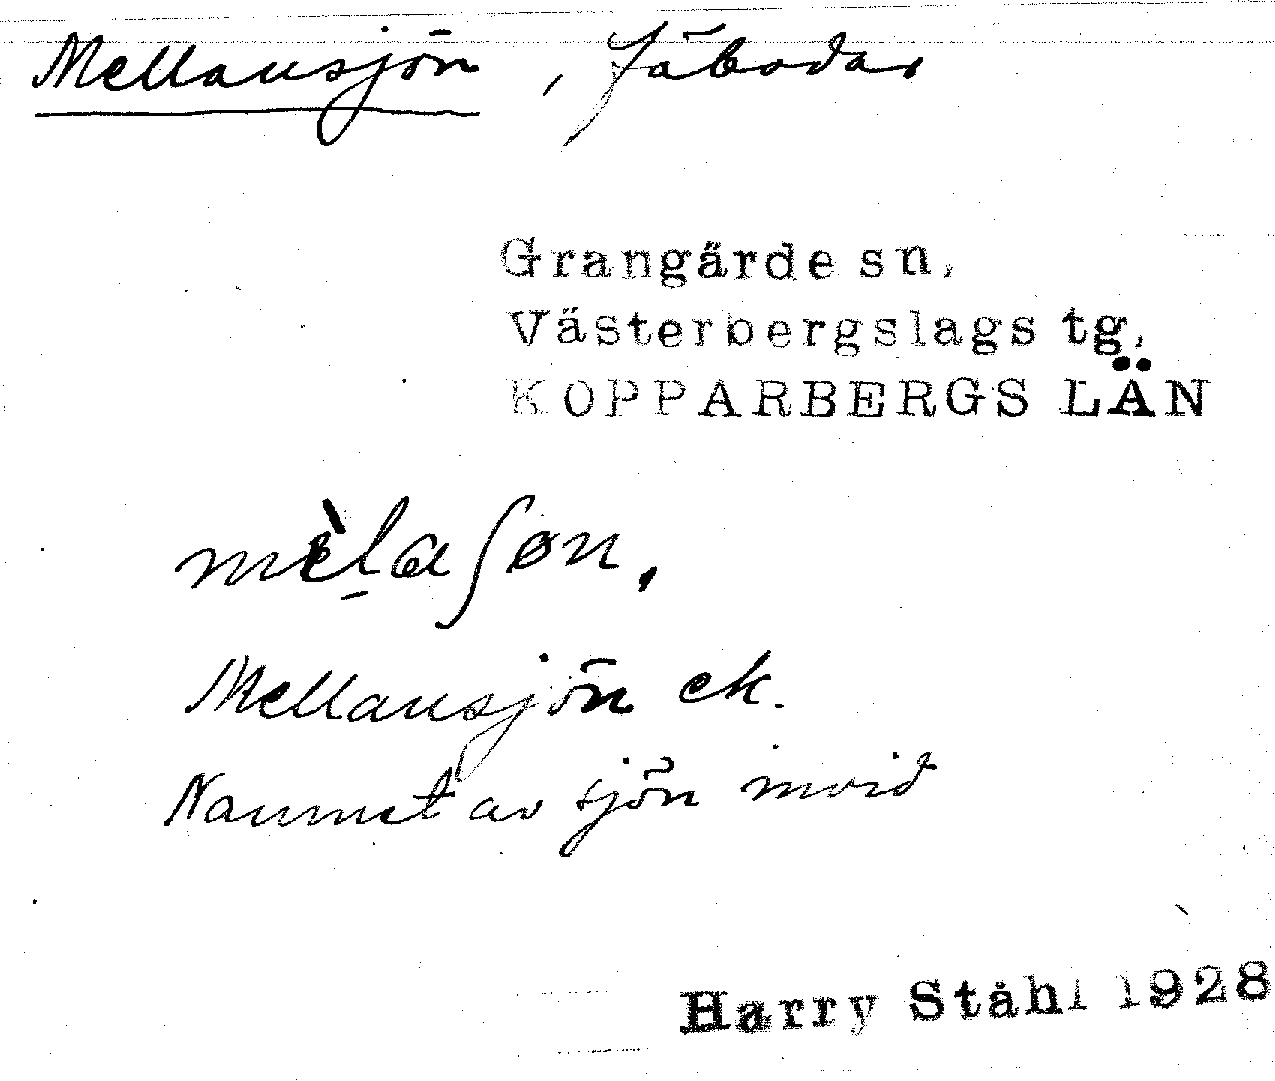 Mellansjön, fäbodar
Grangärde sn,
Västerbergslags tg,
KOPPARBERGS LÄN
Mellansjön ek.
Namnet av sjön invid
Harry Ståhl 1928